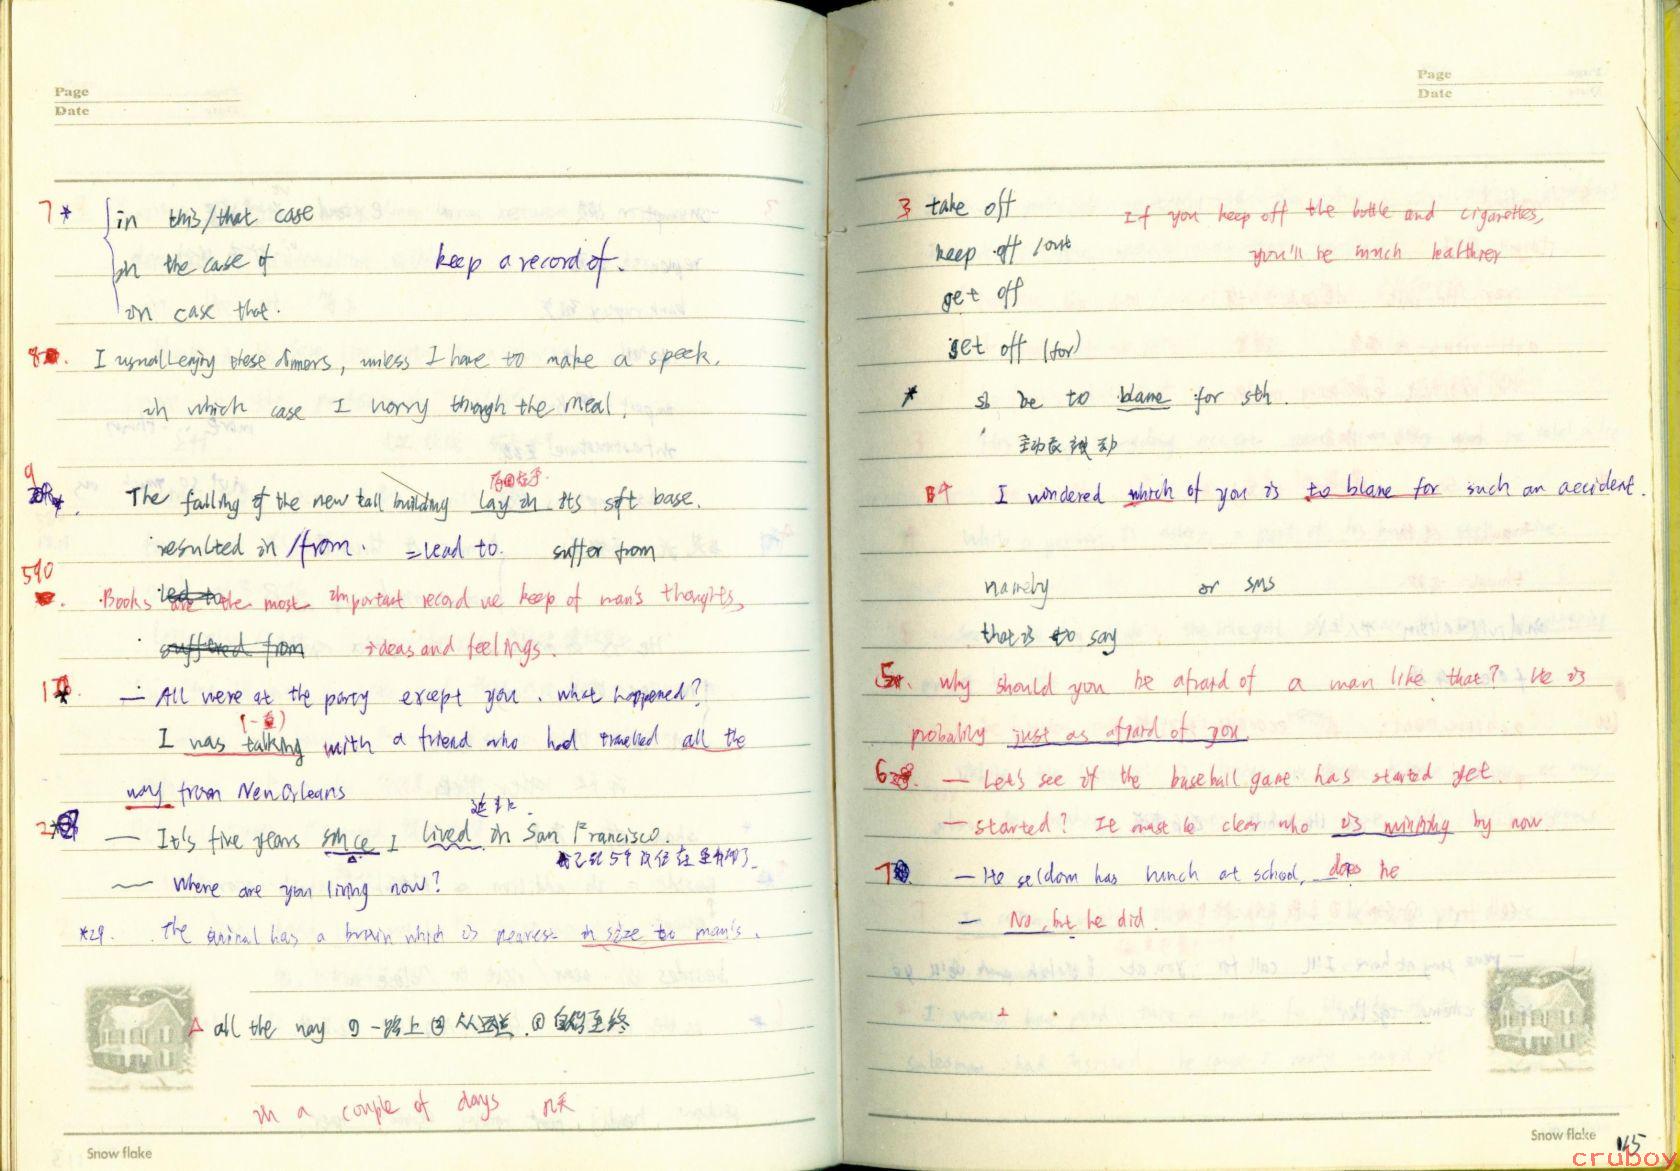 Page
Date
7* in this/that case
in the case of keep a record of.
in case that.
8. I usually enjoy these dinners, unless I have to make a speek.
in which case I worry through the meal.
9
The falling of the new tall building lay in its soft base.
resulted in /from. =lead to. suffer from
led to
Books are the most important record we keep of man's thoughts,
suffered from ideas and feelings.
1 — All were at the party except you. what happened?
I was talking with a friend who had travelled all the
way from New Orleans
2* — It's five years since I lived in San Francisco.
— Where are you living now?
*29. The animal has a brain which is nearest in size to man's.
△ all the way ① 一路上 ② 从远道 ③ 自始至终
in a couple of days 几天
Snow flake
Page
Date
3 take off If you keep off the bottle and cigarettes,
keep off /out you'll be much healthier
get off
set off (for)
* sb be to blame for sth.
主动表被动
4 I windered which of you is to blame for such an accident.
namely or sms
that is to say
5. Why should you be afraid of a man like that? He is
probably just as afraid of you.
6 — Let's see if the baseball game has started yet.
— started? It must be clear who is winning by now.
7 — He seldom has lunch at school, does he
— No, but he did.
Snow flake
145
cruboy